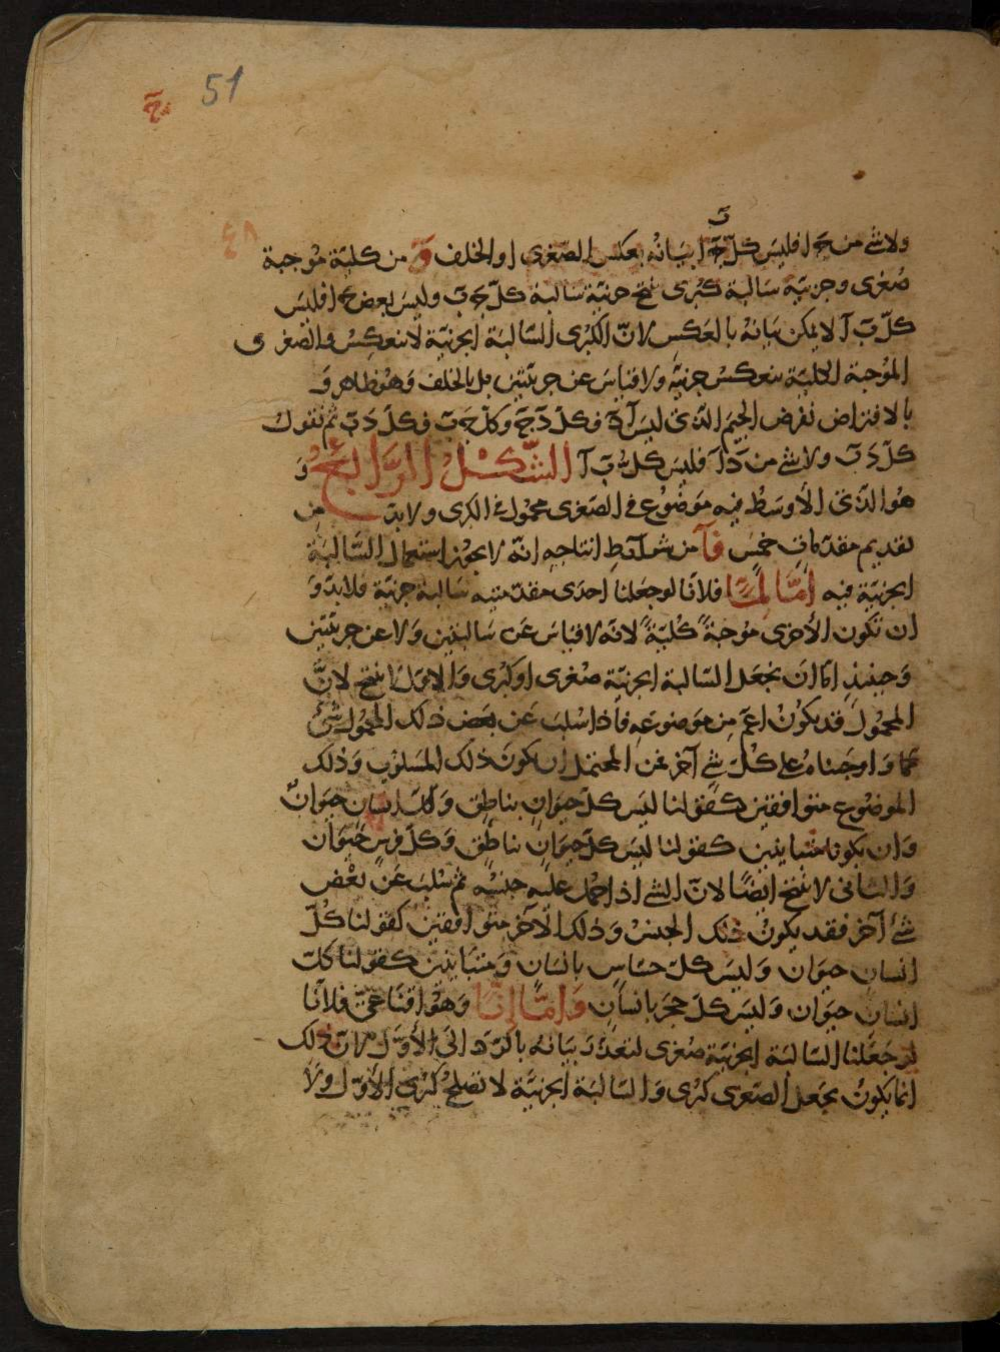 51
٤٨
ب
ولا شئ من جَ ا فليس كلّ جَ ا بيانه بعكس الصغرى او الخلف وَ من كلية مُوجبة
صُغرى وجزئية سَالبة كبرى ينتج جزئية سَالبة كلّ جَ بَ وليسَ بعض جَ ا فليسَ
كلّ بَ آ لا يمكن بَيانه بالعَكس لانّ الكبرى السّالبَة الجزئيّة لا تنعكِسْ والصغرى
الموُجبة الكلّية تنعكسْ جزئية ولا قياسَ عن جزئيّتين بل بالخلف وَهوظاهر وَ
بالافتراض نفرض الجيمَ الذى ليسَ آ دَ فكلّ دَ جَ وكلّ جَ بَ فكلّ دَ بَ ثم نقول
كلّ دَ بَ ولا شئ من دَ آ فليسَ كل بَ آ الشّكْلُ الرَّابعُ وَ
هوالذى الأوسَطُ فيه مَوضُوع فى الصغرى محمول فى الكبرى ولا بدّ من
تقديم مقدّمات خمس فآ من شرائط انتاجه انّه لا يجوز استعمال السَّالبَة
الجزئيَة فيه امَّا لِمَّا فلانّا لوجعلنا احدى مقدّمتيه سَالبة جزئية فلا بدّ وَ
ان تكون الأخرى موُجبةً كُليّةً لانه لا قياسَ عَن سَالبتين وَلا عن جزئيّتين
وَحينئذٍ امّا ان نجعَل السّالبة الجزئيّة صغرى اوكبرى وَالاوّل لا ينتج لانَّ
المحموُل قد يكوُن اعمّ مِن موَضوعَه فاذا سُلبَ عَن بعَض ذلك المحمول شئ
مّا وَاوجَبناهُ على كلّ شئ آخر فمن المحتمل ان يكونَ ذلك المسَلوُب وَذلك
الموضوُع متوافقين كقولنا ليسَ كلّ حيَوانٍ بناطق وَكلّ انسان حيَوانٌ
وَان يكونا متبَاينين كقولنا ليسَ كلّ حيَوانٍ بناطِق وَكلّ فرسٍ حيَوان
وَالثانى لا ينتج ايضًا لانّ الشئ اذا حُمل عليْه جنسُه ثم سُلبَ عَنْ بعْض
شئ آخر فقد يكونُ ذلك الجنسْ وَذلك الآخر متوافقين كقولنا كُلّ
انسانٍ حيَوان وَليسَ كلّ حسّاسٍ بانسَان وَمتبَاينين كقولنا كلّ
انسانٍ حيَوان وَليسَ كلّ حجَر بانسانٍ وَامّا اِنّا وَهوُ اقناعىّ فلأنّا
لو جَعلنا السّالبَة الجزئيّة صغرى لتعذّر بيَانه بالرّد الى الأوّل لانّ ذلك
انما يكونُ بجَعل الصغرى كبرى وَالسّالبَة الجزئيَّة لا تصلحُ كبرى الاوّل ولا